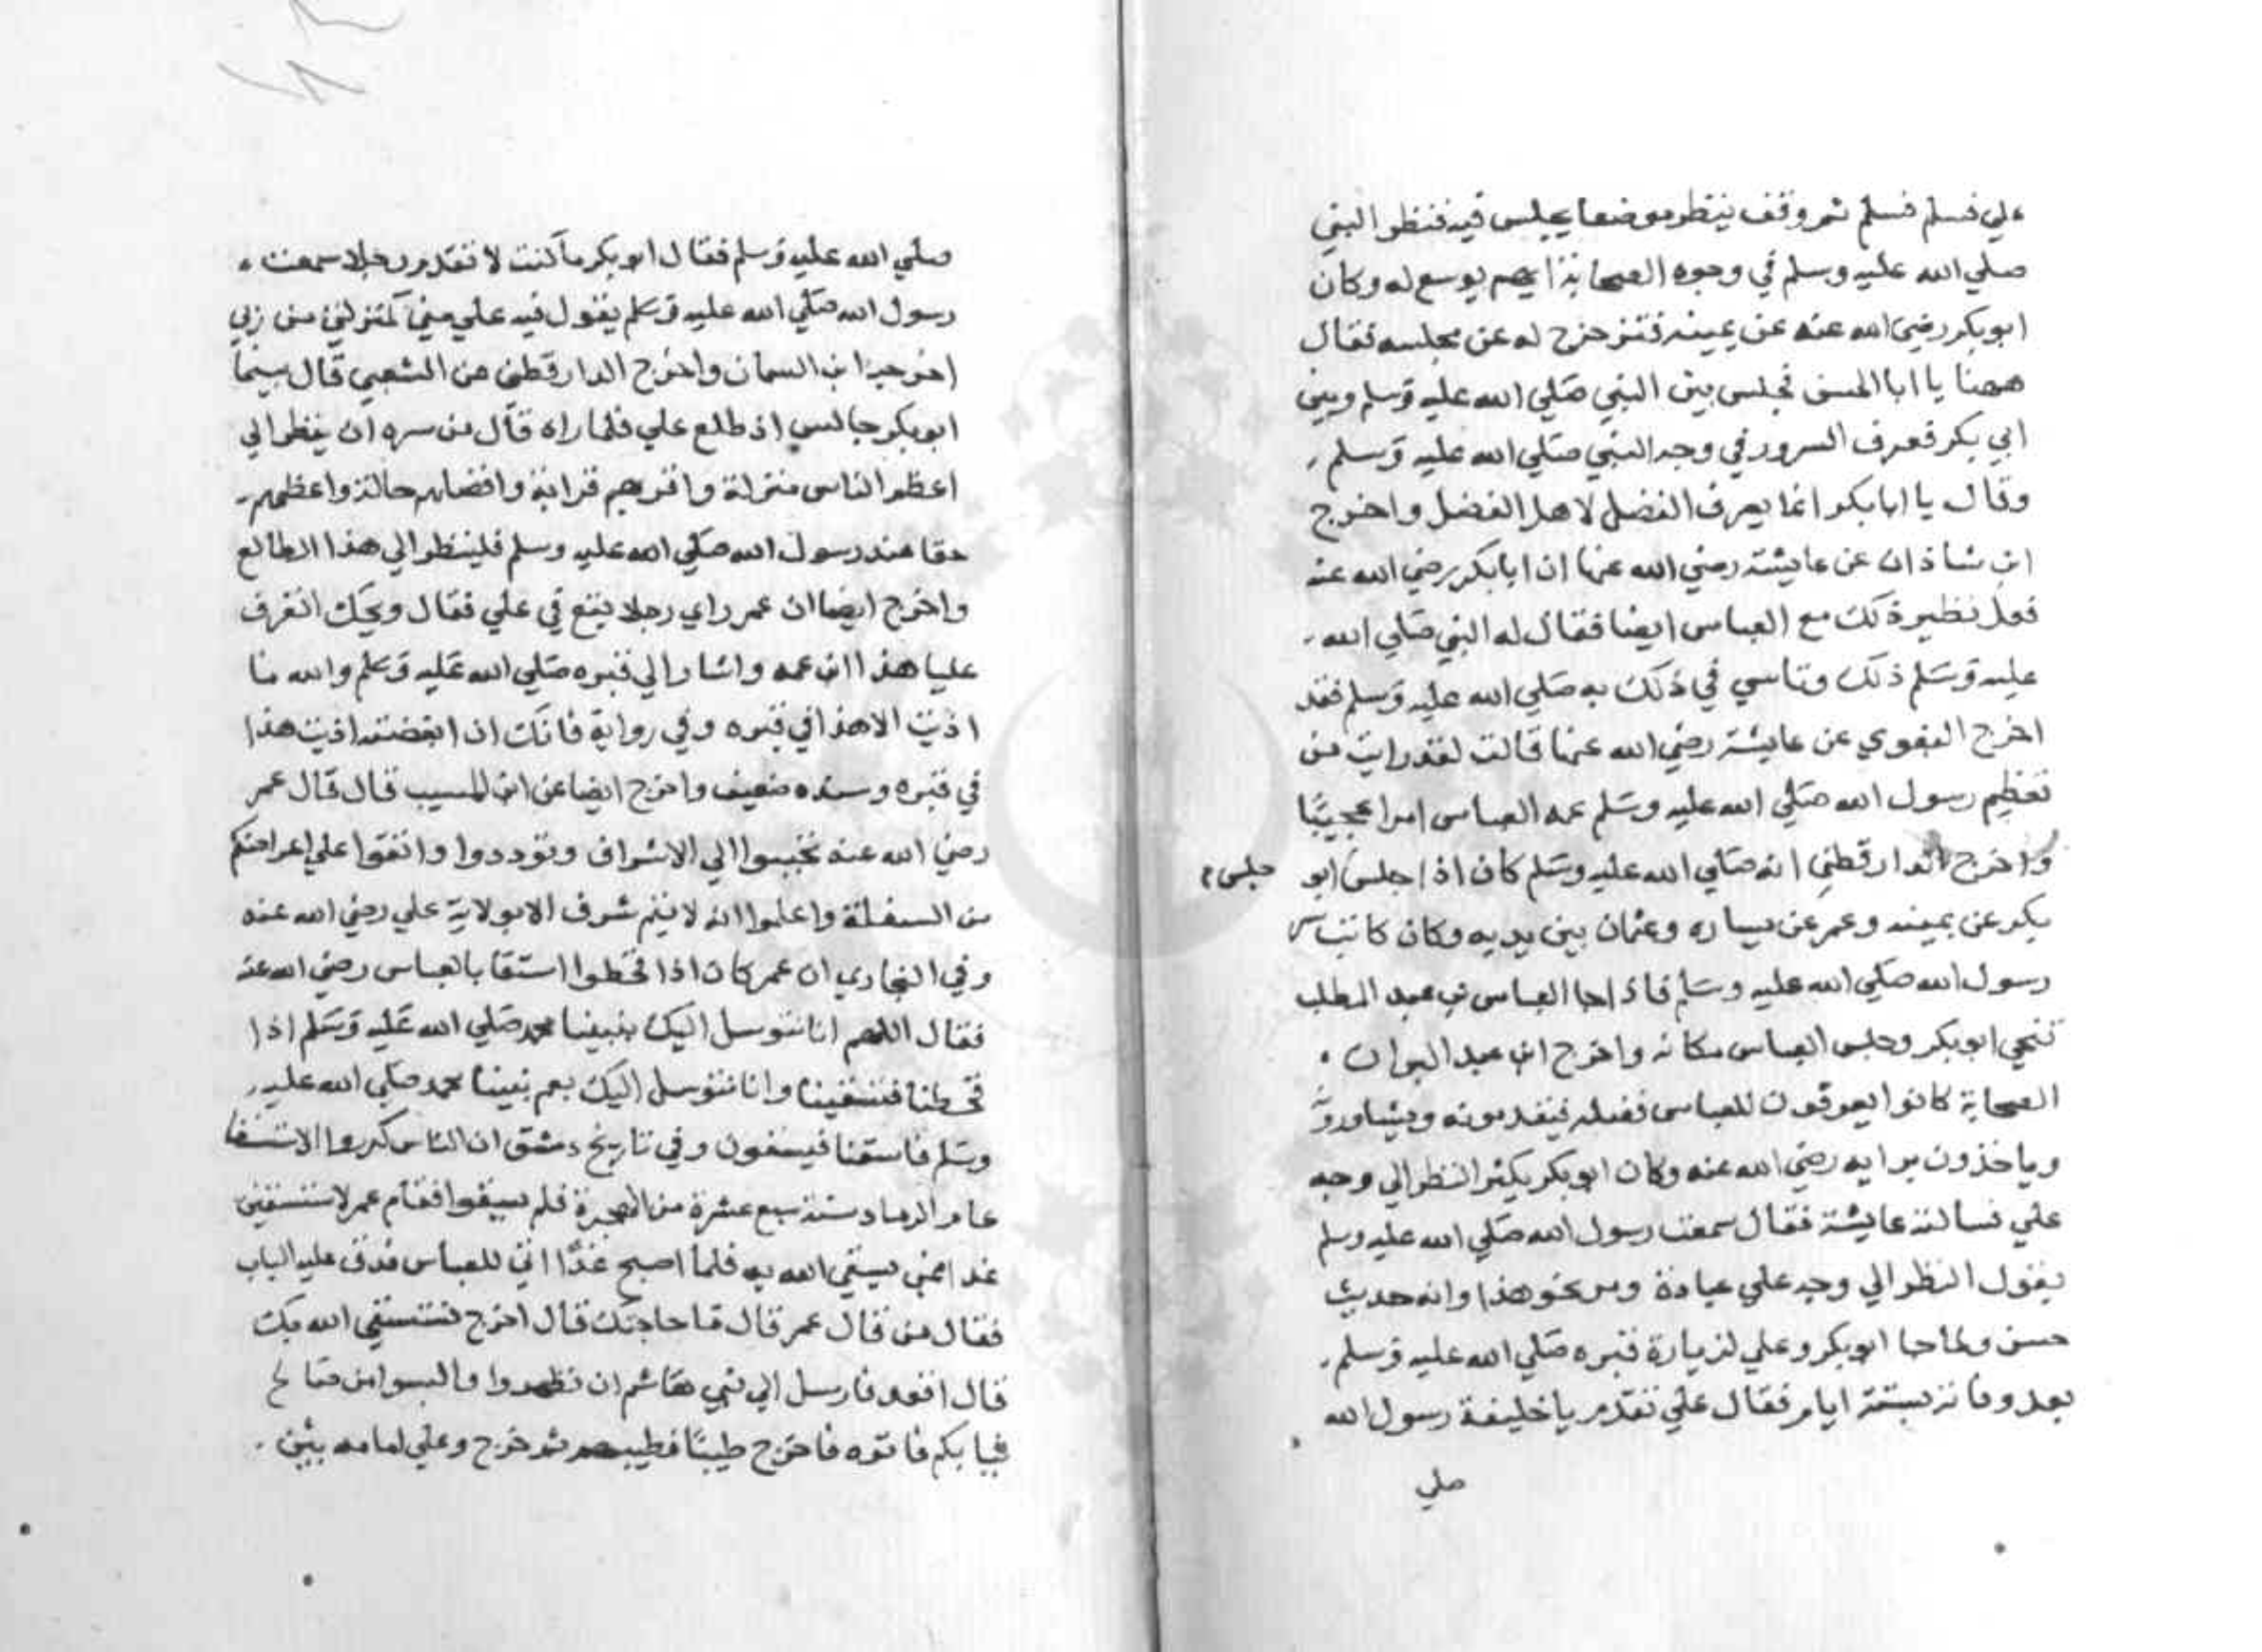 علي فسلم فسلم ثم وقف ينتظر موضعا يجلس فيه فنظر النبي
صلي الله عليه وسلم في وجوه الصحابة ايهم يوسع له وكان
ابو بكر رضي الله عنه عن يمينه فتزحزح له عن مجلسه فقال
ههنا يا ابا الحسن فجلس بين النبي صلي الله عليه وسلم وبين
ابي بكر فعرف السرور في وجه النبي صلي الله عليه وسلم
وقال يا ابا بكر انما يعرف الفضل لاهل الفضل واخرج
ابن شاذان عن عايشة رضي الله عنها ان ابا بكر رضي الله عنه
فعل نظير ذلك مع العباس ايضا فقال له النبي صلي الله
عليه وسلم ذلك وتاسي في ذلك به صلي الله عليه وسلم فقد
اخرج البغوي عن عايشة رضي الله عنها قالت لقد رايت من
تعظيم رسول الله صلي الله عليه وسلم عمه العباس امرا عجيبا
واخرج الدارقطني انه صلي الله عليه وسلم كان اذا جلس ابو
جلس
بكر عن يمينه وعمر عن يساره وعثمان بين يديه وكان كاتب
رسول الله صلي الله عليه وسلم فاذا جا العباس بن عبد المطلب
تنحي ابو بكر وجلس العباس مكانه واخرج ابن عبد البر ان
الصحابة كانوا يعرفون للعباس فضله فيقدمونه ويشاورونه
وياخذون برايه رضي الله عنه وكان ابو بكر يكثر النظر الي وجه
علي فسالته عايشة فقال سمعت رسول الله صلي الله عليه وسلم
يقول النظر الي وجه علي عبادة ومر نحو هذا وانه حديث
حسن ولما جا ابو بكر وعلي لزيارة قبره صلي الله عليه وسلم
بعد وفاته بستة ايام فقال علي تقدم يا خليفة رسول الله
صلي
صلي الله عليه وسلم فقال ابو بكر ما كنت لاتقدم رجلا سمعت
رسول الله صلي الله عليه وسلم يقول فيه علي مني كمنزلتي من ربي
اخرجه ابن السمان واخرج الدارقطني عن الشعبي قال بينما
ابو بكر جالس اذ طلع علي فلما راه قال من سره ان ينظر الي
اعظم الناس منزلة واقربهم قرابة وافضلهم حالة واعظمهم
حقا عند رسول الله صلي الله عليه وسلم فلينظر الي هذا الطالع
واخرج ايضا ان عمر راي رجلا يقع في علي فقال ويحك اتعرف
عليا هذا ابن عمه واشار الي قبره صلي الله عليه وسلم والله ما
اذيت الا هذا في قبره وفي رواية فانك ان ابغضته اذيت هذا
في قبره وسنده ضعيف واخرج ايضا عن ابن المسيب قال قال عمر
رضي الله عنه تحببوا الي الاشراف وتوددوا واتقوا علي اعراضكم
من السفلة واعلموا انه لا يتم شرف الا بولاية علي رضي الله عنه
وفي البخاري ان عمر كان اذا قحطوا استقا بالعباس رضي الله عنه
فقال اللهم انا نتوسل اليك بنبينا محمد صلي الله عليه وسلم اذا
قحطنا فتسقينا وانا نتوسل اليك بعم نبينا محمد صلي الله عليه
وسلم فاسقنا فيسقون وفي تاريخ دمشق ان الناس كرروا الاستسقا
عام الرماد سنة سبع عشرة من الهجرة فلم يسقوا فقام عمر لاستسقين
غدا بمن يسقي الله به فلما اصبح غدا اتي للعباس فدق عليه الباب
فقال من قال عمر قال ما حاجتك قال اخرج نستسقي الله بك
قال اقعد فارسل الي بني هاشم ان تطهروا والبسوا من صالح
ثيابكم فاتوه فاخرج طيبا فطيبهم ثم خرج وعلي امامه بين